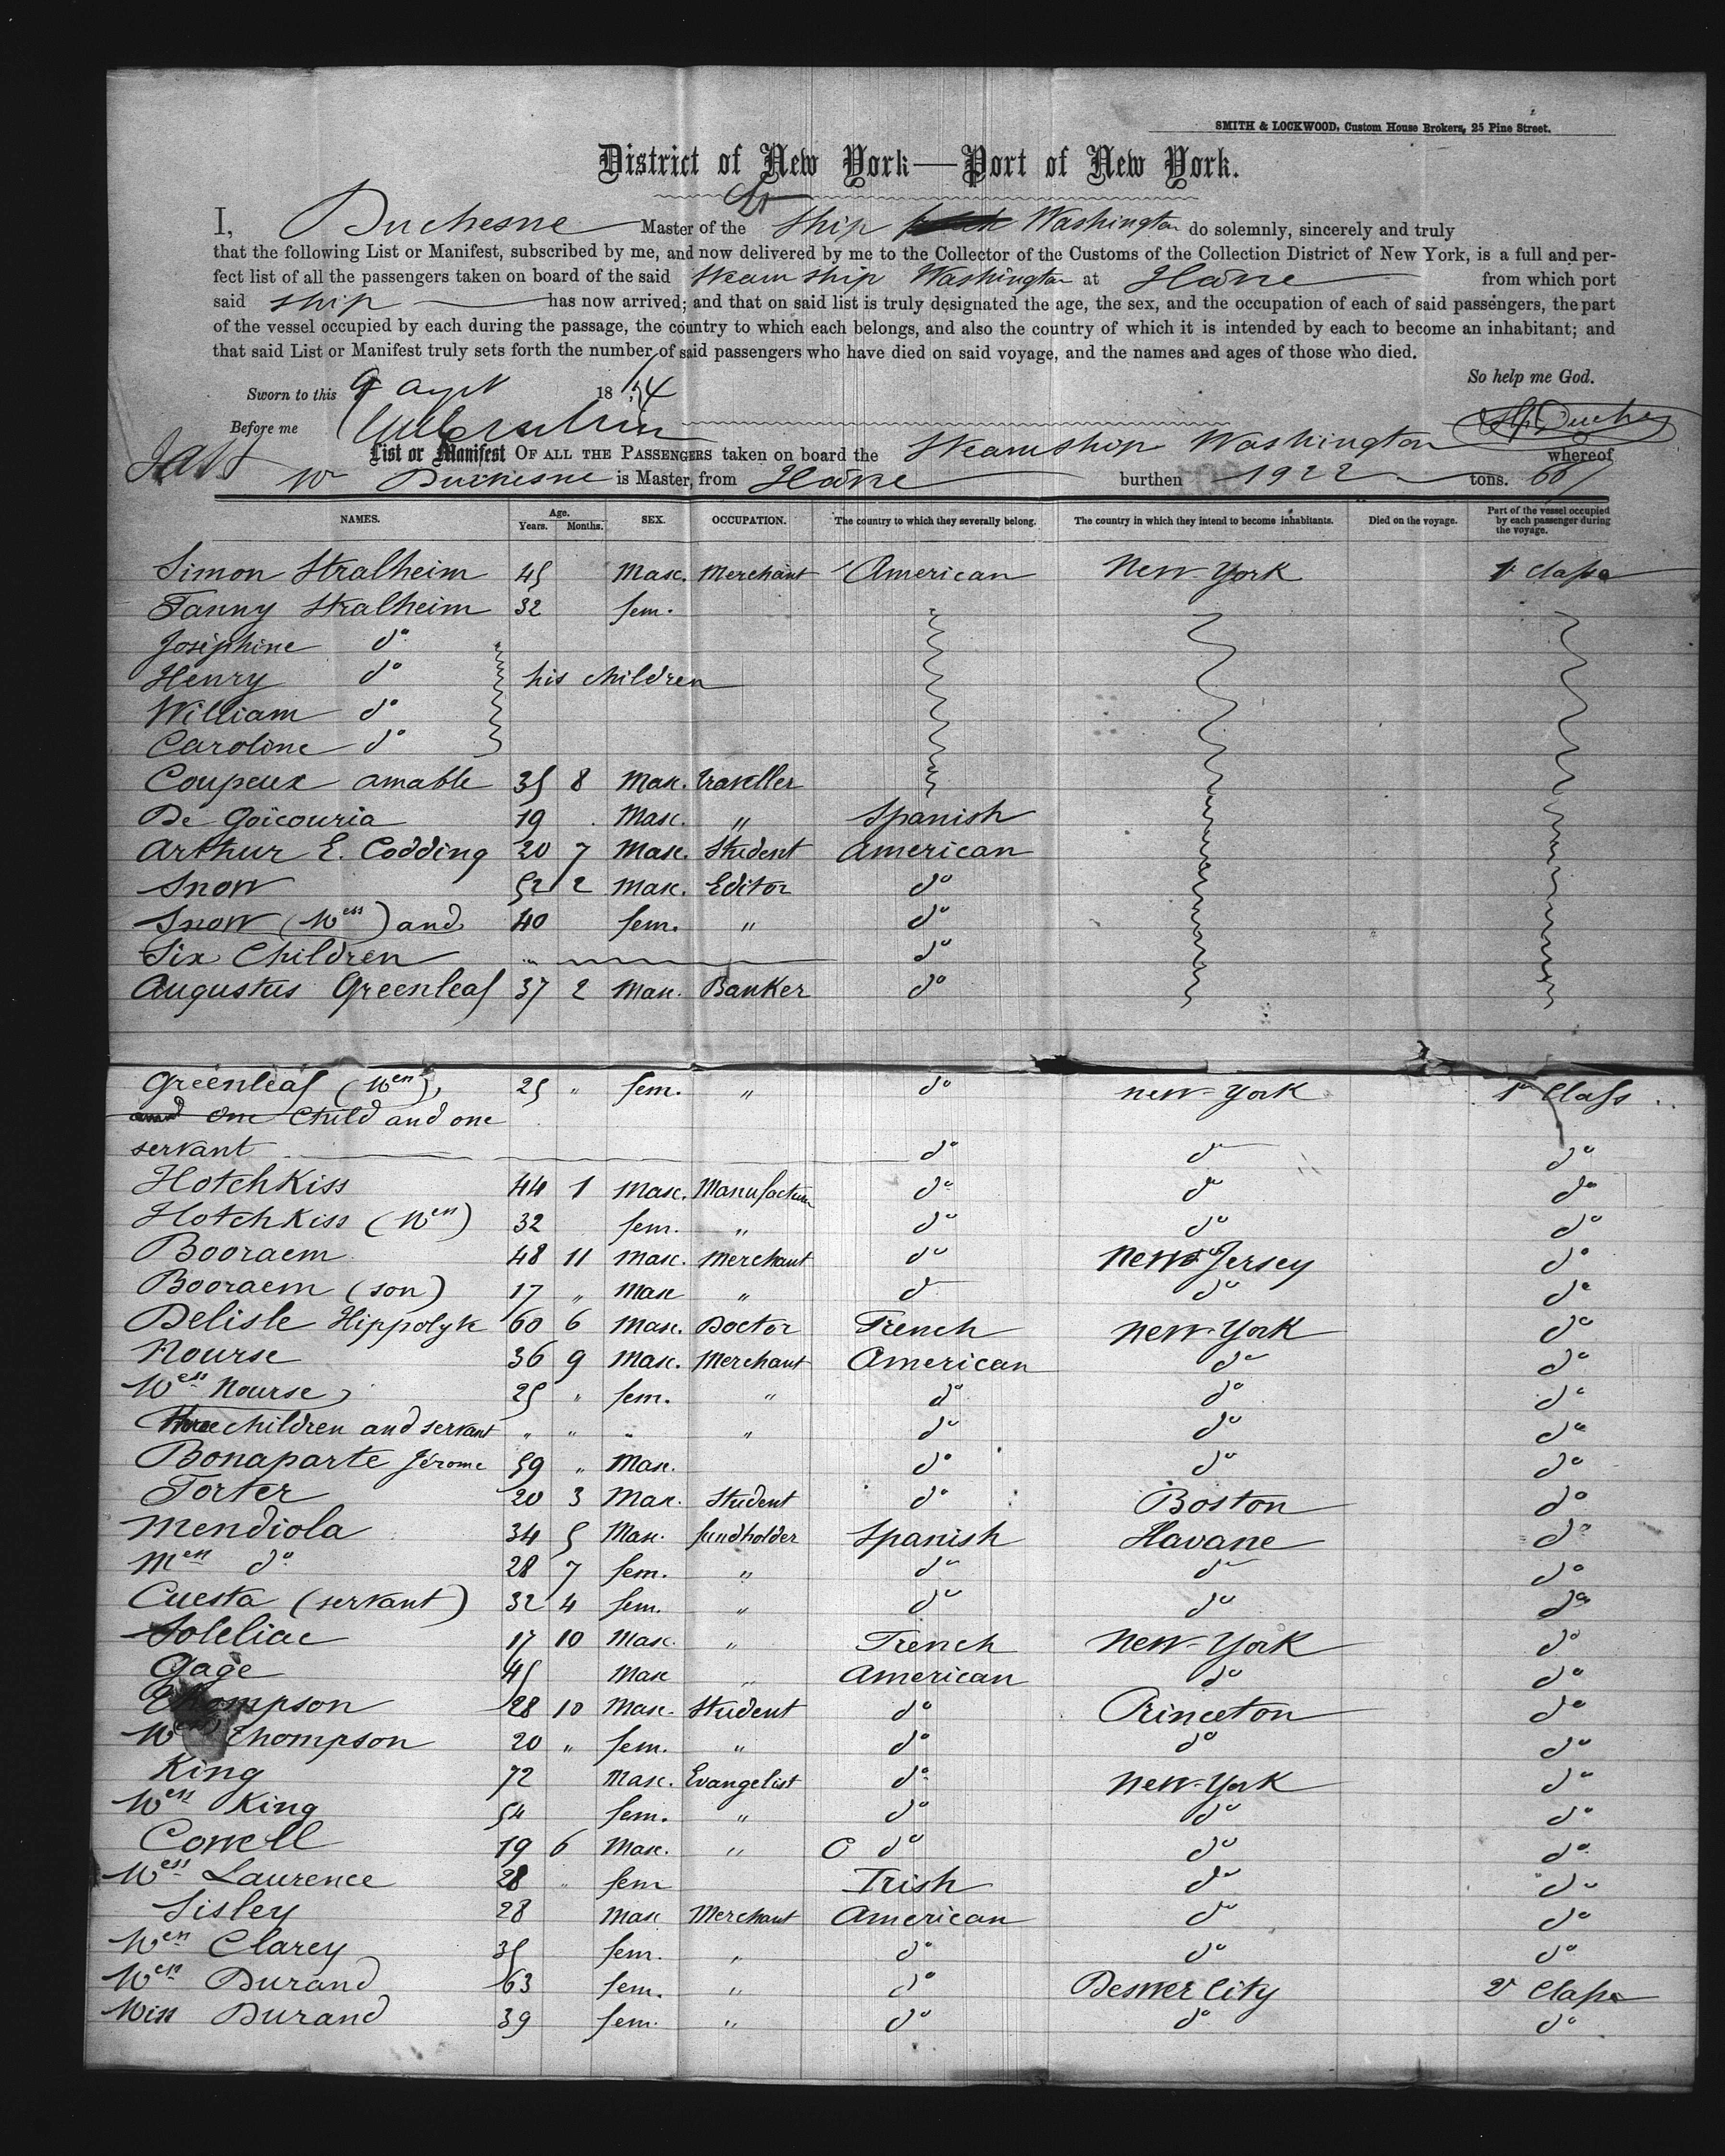 SMITH & LOCKWOOD, Custom House Brokers, 25 Pine Street.
District of New York—Port of New York.
I, Duchesne Master of the Str Ship Washington do solemnly, sincerely and truly
that the following List or Manifest, subscribed by me, and now delivered by me to the Collector of the Customs of the Collection District of New York, is a full and per-
fect list of all the passengers taken on board of the said Steam ship Washington at Hâvre from which port
said ship has now arrived; and that on said list is truly designated the age, the sex, and the occupation of each of said passengers, the part
of the vessel occupied by each during the passage, the country to which each belongs, and also the country of which it is intended by each to become an inhabitant; and
that said List or Manifest truly sets forth the number of said passengers who have died on said voyage, and the names and ages of those who died.
So help me God.
Sworn to this 9 Sept 1874
Before me
List or Manifest OF ALL THE PASSENGERS taken on board the Steamship Washington whereof
Mr Duchesne is Master, from Hâvre burthen 1922 tons.
NAMES. Age. Years. Months. SEX. OCCUPATION. The country to which they severally belong. The country in which they intend to become inhabitants. Died on the voyage. Part of the vessel occupied by each passenger during the voyage.
Simon Stralheim 45 Masc. Merchant American New-York 1r class
Fanny Stralheim 32 fem.
Joséphine do
Henry do his children
William do
Caroline do
Coupeux amable 35 8 Masc. traveller
De Goicouria 19 Masc. " Spanish
Arthur E. Codding 20 7 Masc. Student American
Snow 52 2 Masc. Editor do
Snow (Mess) and 40 fem. " do
Six Children " do
Augustus Greenleaf 37 2 Masc. Banker do
Greenleaf (Mess), 25 " fem. " do New-York 1r Class
one Child and one
servant do do do
Hotchkiss 44 1 Masc. Manufacturer do do do
Hotchkiss (Mess) 32 fem. " do do do
Booraem 48 11 Masc. Merchant do New-Jersey do
Booraem (son) 17 " Masc " do do do
Delisle Hippolyte 60 6 Masc. Doctor French New-York do
Nourse 36 9 Masc. Merchant American do do
Mess Nourse, 25 " fem. " do do do
three children and servant " " " " do do do
Bonaparte Jérome 59 " Masc. do do do
Torter 20 3 Masc. Student do Boston do
Mendiola 34 5 Masc. fundholder Spanish Havane do
Mess do 28 7 fem. " do do do
Cuesta (servant) 32 4 fem. " do do do
Soleliac 17 10 Masc. " French New-York do
Gage 45 Masc " American do do
Thompson 28 10 Masc. Student do Princeton do
Mess Thompson 20 " fem. " do do do
King 72 Masc. Evangelist do New-York do
Mess King 54 fem. " do do do
Cowell 19 6 Masc. " do do do
Mess Laurence 28 " fem Irish do do
Sisley 28 Masc Merchant American do do
Mess Clarey 35 fem. " do do do
Mess Durand 63 fem. " do Denver City 2e Class
Miss Durand 39 fem. " do do do